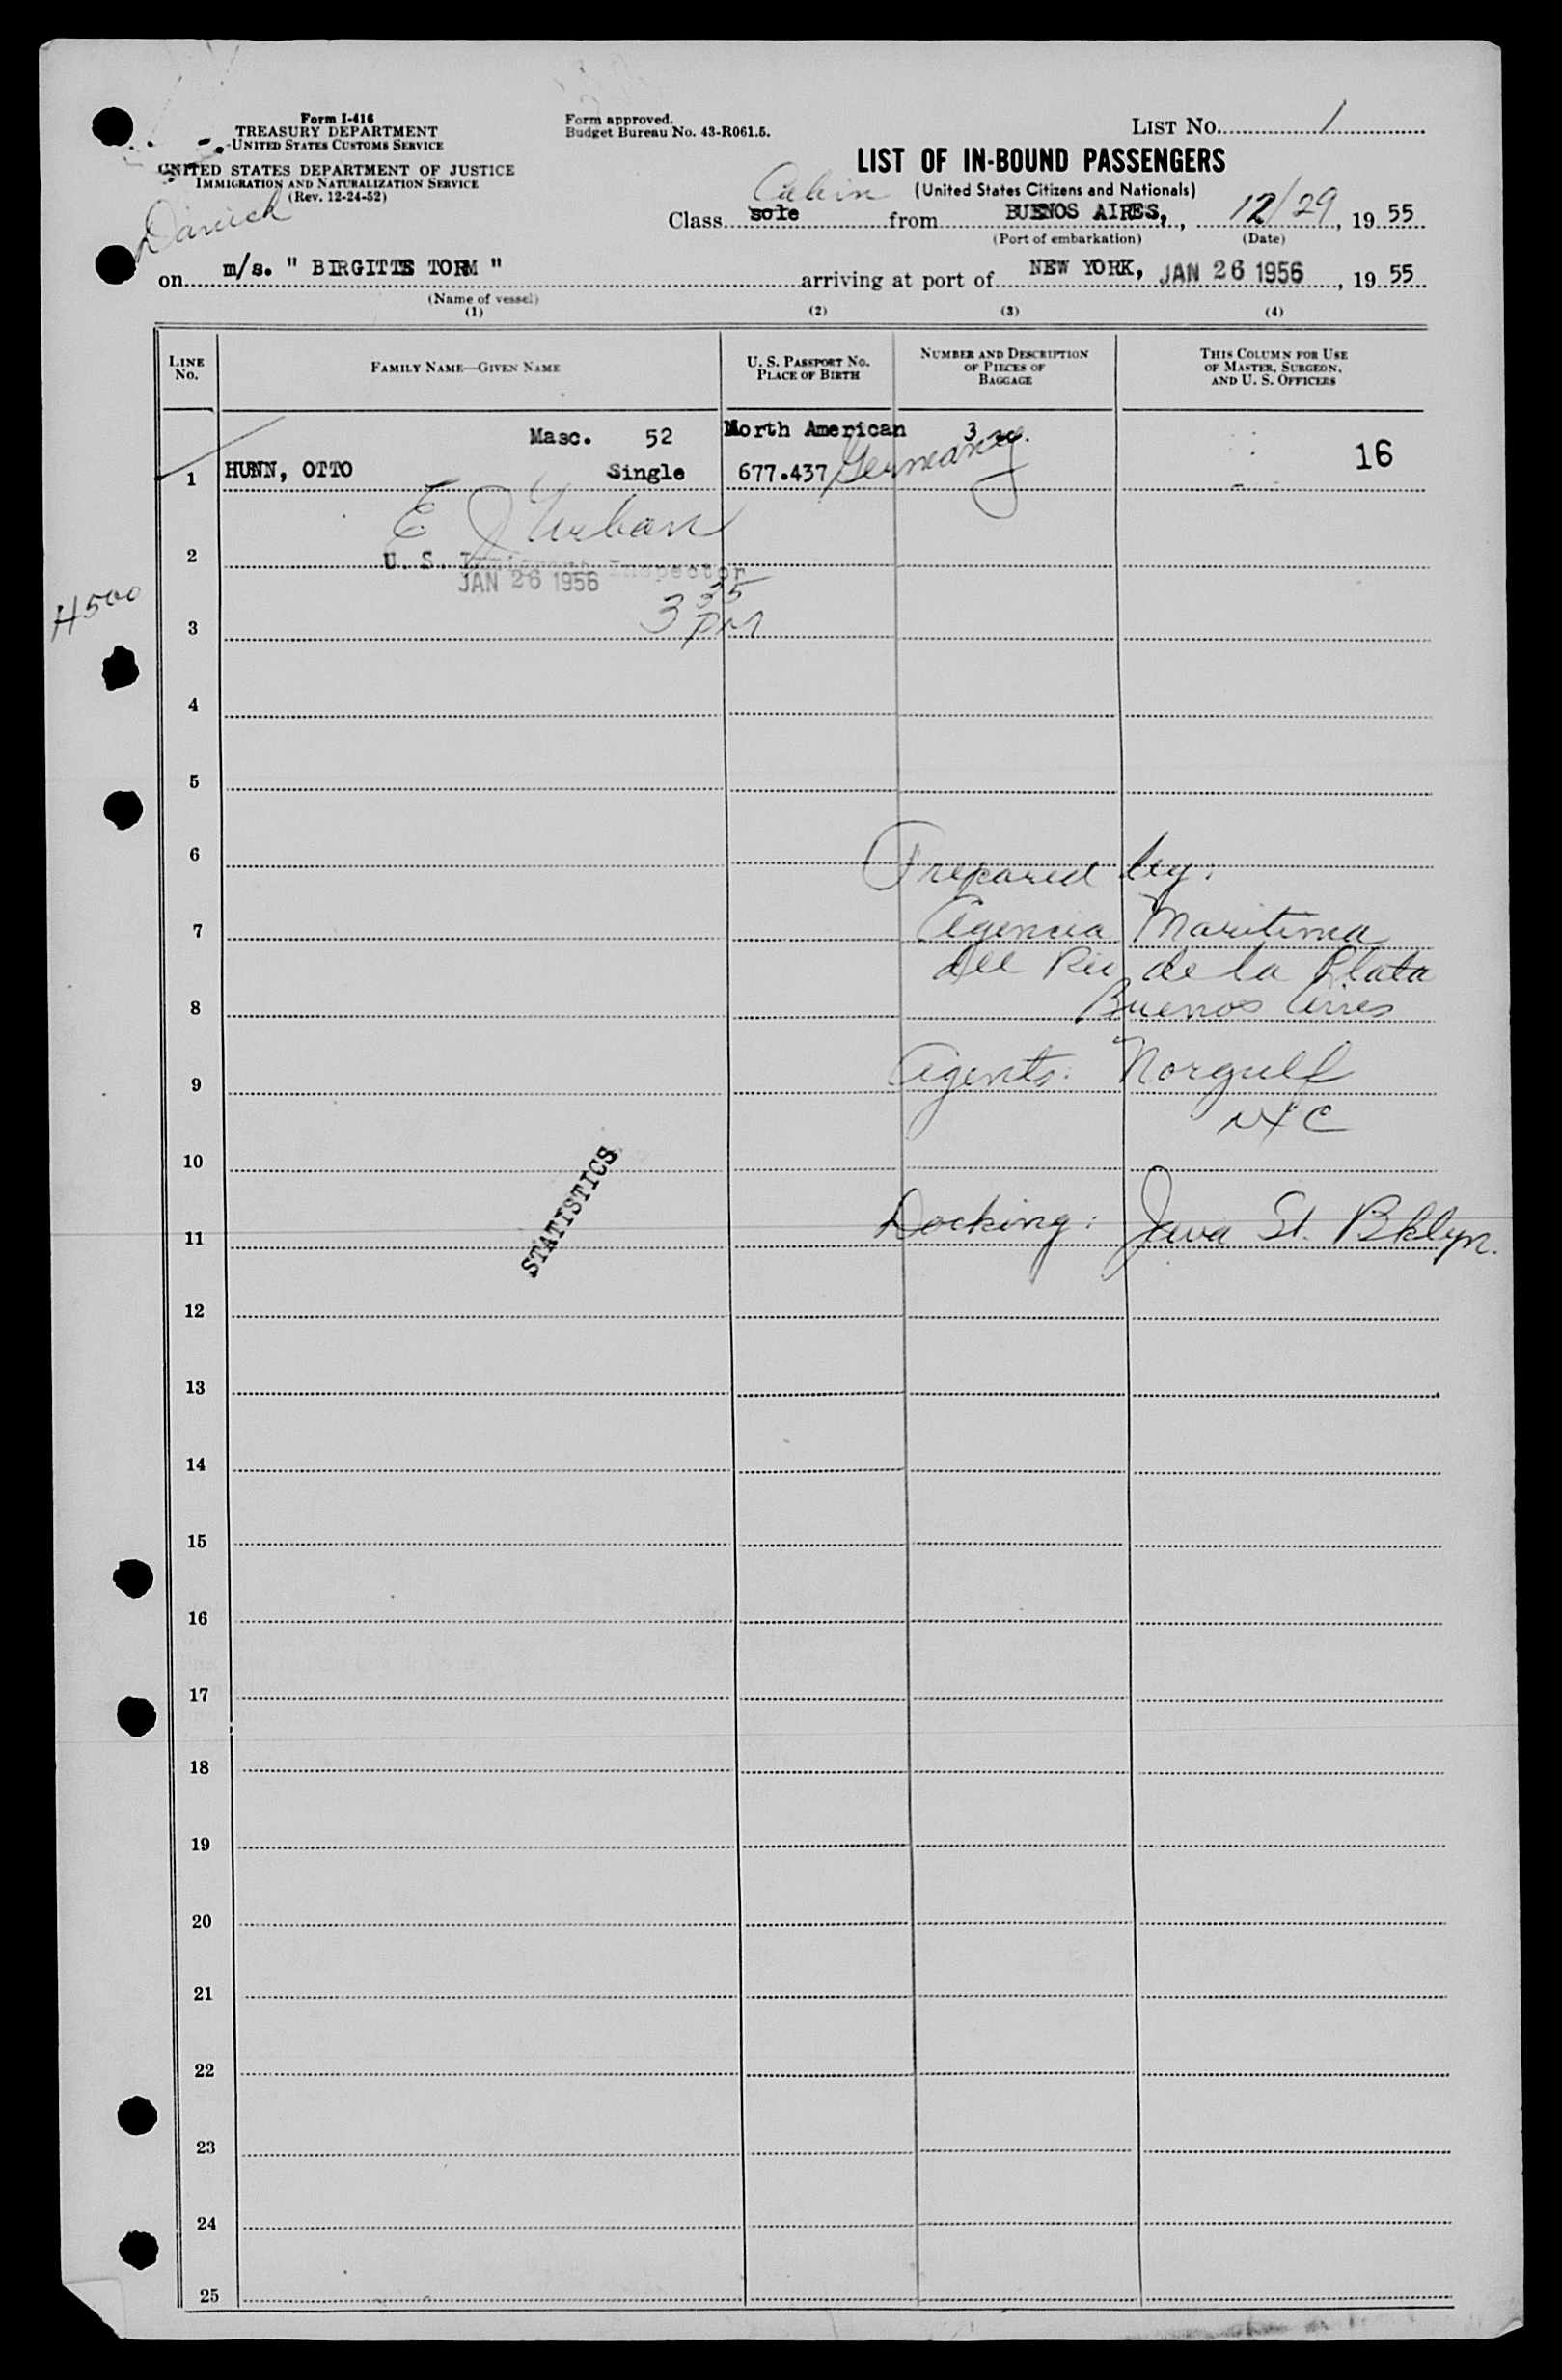 Form I-416
TREASURY DEPARTMENT
UNITED STATES CUSTOMS SERVICE
UNITED STATES DEPARTMENT OF JUSTICE
IMMIGRATION AND NATURALIZATION SERVICE
(Rev. 12-24-52)
Form approved.
Budget Bureau No. 43-R061.5.
LIST NO. 1
LIST OF IN-BOUND PASSENGERS
(United States Citizens and Nationals)
Cabin
Class sole from BUENOS AIRES, , 12/29, 19 55
(Port of embarkation) (Date)
Danish
on m/s. " BIRGITTE TORM " arriving at port of NEW YORK, JAN 26 1956, 19 55
(Name of vessel)
(1) (2) (3) (4)
LINE No. FAMILY NAME—GIVEN NAME U. S. PASSPORT NO. PLACE OF BIRTH NUMBER AND DESCRIPTION OF PIECES OF BAGGAGE THIS COLUMN FOR USE OF MASTER, SURGEON, AND U. S. OFFICERS
Masc. 52 North American 3
1 HUNN, OTTO Single 677.437 Germany 16
E J Urban
2 U. S. Immigrant Inspector
JAN 26 1956
H500
3 35 PM
3
4
5
6
Prepared by:
7 Agencia Maritima
del Rio de la Plata
8 Buenos Aires
9 Agents: Norgulf
NYC
10
STATISTICS
11 Docking: Java St. Bklyn.
12
13
14
15
16
17
18
19
20
21
22
23
24
25